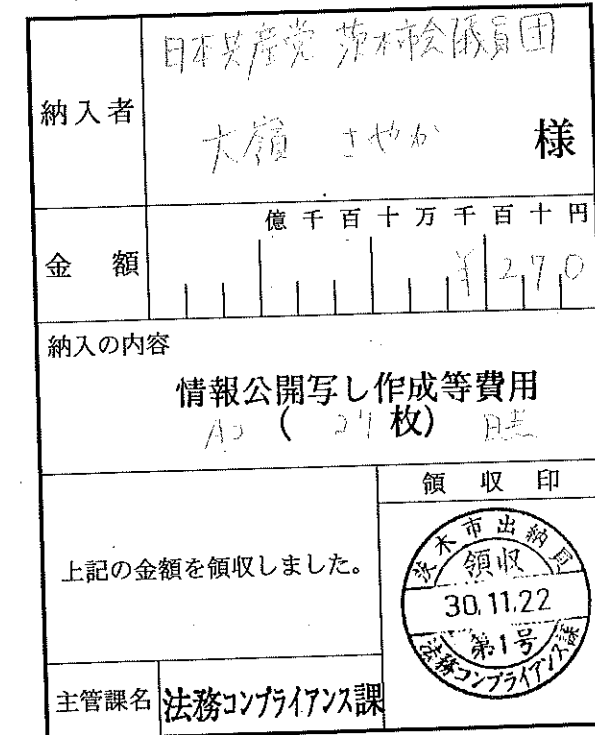 日本共産党 茨木市会議員団
納入者
大嶺 さやか 様
億千百十万千百十円
金額 ¥270
納入の内容
情報公開写し作成等費用
( 27枚)
領収印
上記の金額を領収しました。
茨木市出納員
領収
30.11.22
第1号
法務コンプライアンス課
主管課名 法務コンプライアンス課